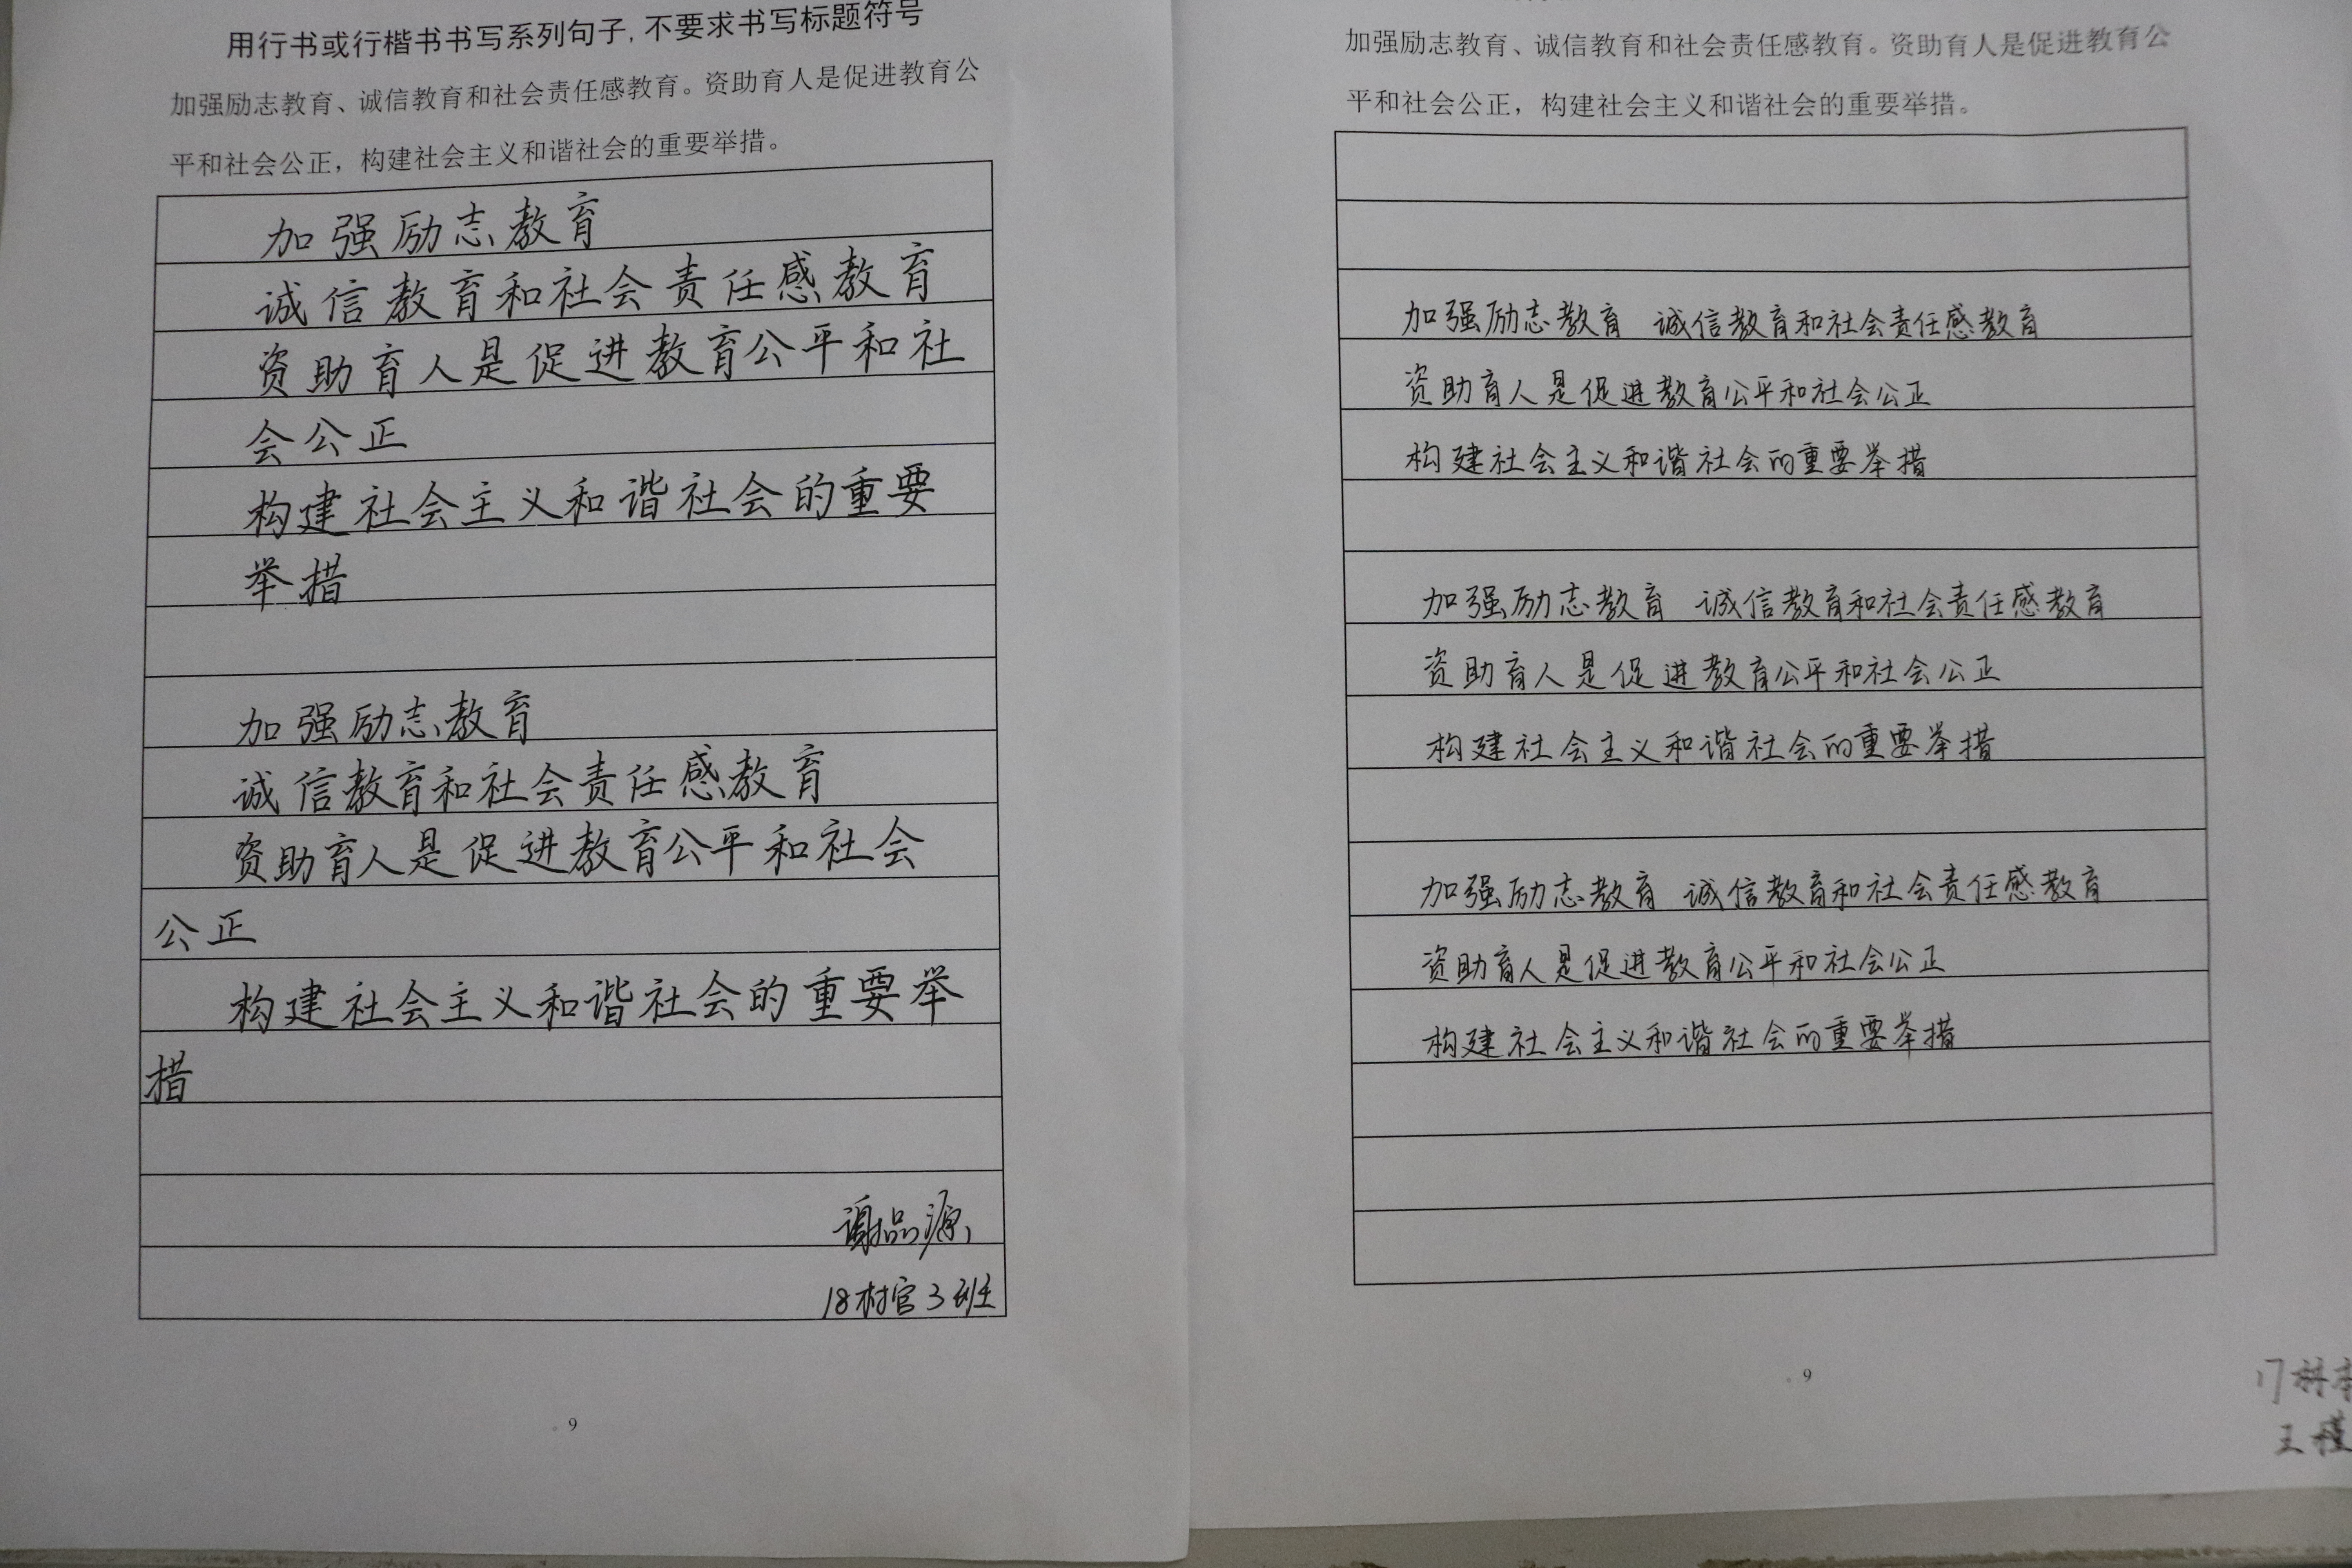 用行书或行楷书书写系列句子,不要求书写标题符号
加强励志教育、诚信教育和社会责任感教育。资助育人是促进教育公
平和社会公正，构建社会主义和谐社会的重要举措。
加强励志教育
诚信教育和社会责任感教育
资助育人是促进教育公平和社
会公正
构建社会主义和谐社会的重要
举措
加强励志教育
诚信教育和社会责任感教育
资助育人是促进教育公平和社会
公正
构建社会主义和谐社会的重要举
措
谢品源
18村官3班
9
加强励志教育、诚信教育和社会责任感教育。资助育人是促进教育公
平和社会公正，构建社会主义和谐社会的重要举措。
加强励志教育 诚信教育和社会责任感教育
资助育人是促进教育公平和社会公正
构建社会主义和谐社会的重要举措
加强励志教育 诚信教育和社会责任感教育
资助育人是促进教育公平和社会公正
构建社会主义和谐社会的重要举措
加强励志教育 诚信教育和社会责任感教育
资助育人是促进教育公平和社会公正
构建社会主义和谐社会的重要举措
9
王